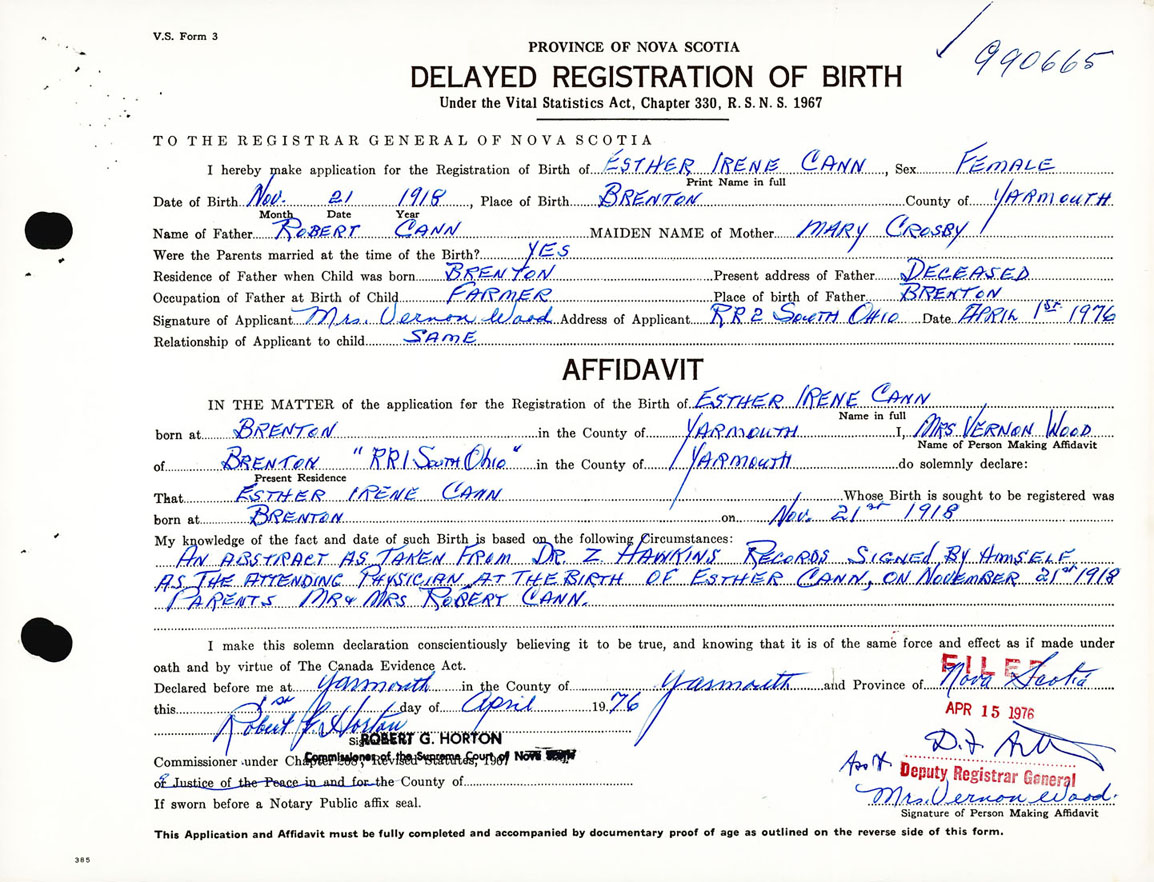 V.S. Form 3
990665
PROVINCE OF NOVA SCOTIA
DELAYED REGISTRATION OF BIRTH
Under the Vital Statistics Act, Chapter 330, R.S.N.S. 1967
TO THE REGISTRAR GENERAL OF NOVA SCOTIA
I hereby make application for the Registration of Birth of ESTHER IRENE CANN, Sex FEMALE
Print Name in full
Date of Birth Nov. 21 1918, Place of Birth BRENTON County of YARMOUTH
Month Date Year
Name of Father ROBERT CANN MAIDEN NAME of Mother MARY CROSBY
Were the Parents married at the time of the Birth? YES
Residence of Father when Child was born BRENTON Present address of Father DECEASED
Occupation of Father at Birth of Child FARMER Place of birth of Father BRENTON
Signature of Applicant Mrs. Vernon Wood Address of Applicant RR2 SOUTH OHIO Date APRIL 1st 1976
Relationship of Applicant to child SAME
AFFIDAVIT
IN THE MATTER of the application for the Registration of the Birth of ESTHER IRENE CANN
Name in full
born at BRENTON in the County of YARMOUTH I, MRS VERNON WOOD
Name of Person Making Affidavit
of BRENTON "RR1 SOUTH OHIO" in the County of YARMOUTH do solemnly declare:
Present Residence
That ESTHER IRENE CANN Whose Birth is sought to be registered was
born at BRENTON on Nov. 21st 1918
My knowledge of the fact and date of such Birth is based on the following Circumstances:
AN ABSTRACT AS TAKEN FROM DR. Z HAWKINS RECORDS SIGNED BY HIMSELF
AS THE ATTENDING PHYSICIAN AT THE BIRTH OF ESTHER CANN, ON NOVEMBER 21st 1918
PARENTS MR & MRS ROBERT CANN.
I make this solemn declaration conscientiously believing it to be true, and knowing that it is of the same force and effect as if made under
oath and by virtue of The Canada Evidence Act.
FILED
Declared before me at Yarmouth in the County of Yarmouth and Province of Nova Scotia
this 1st day of April 1976
APR 15 1976
Robert G. Horton
ROBERT G. HORTON
Commissioner of the Supreme Court of Nova Scotia
Commissioner under Chapter 208, Revised Statutes, 196
Ass't Deputy Registrar General
or Justice of the Peace in and for the County of
Mrs. Vernon Wood.
If sworn before a Notary Public affix seal.
Signature of Person Making Affidavit
This Application and Affidavit must be fully completed and accompanied by documentary proof of age as outlined on the reverse side of this form.
385